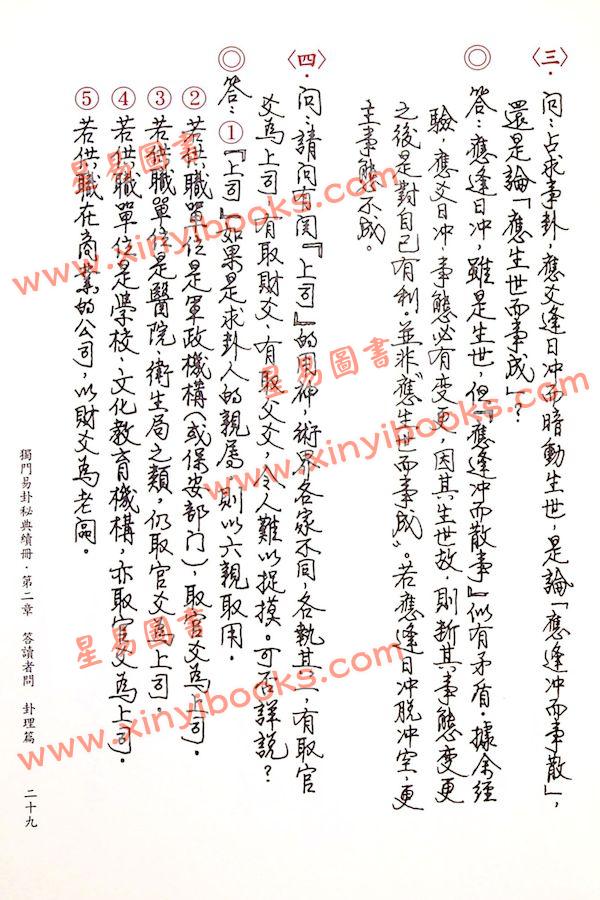 〈三〉．問：占求事卦，應爻逢日冲而暗動生世，是論「應逢冲而事散」，
還是論「應生世而事成」？
◎答：應逢日冲，雖是生世，但『應逢冲而散事』似有矛盾。據余經
驗，應爻日冲，事態必有變更，因其生世故，則斷其事態變更
之後是對自己有利。並非〝應生世而事成〞。若應逢日冲脱冲空，更
主事態不成。
〈四〉．問：請问有関『上司』的用神，術界各家不同，各執其一，有取官
爻為上司，有取財爻，有取父爻，令人難以捉摸。可否詳説？
◎答：①『上司』如果是求卦人的親属，則以六親取用。
②若供職單位是軍政機構(或保安部门)，取官爻為上司。
③若供職單位是醫院、衛生局之類，仍取官爻為上司。
④若供職單位是學校、文化教育機構，亦取官爻為上司。
⑤若供職在商業的公司，以財爻為老闆。
獨門易卦秘典續冊．第二章 答讀者問 卦理篇 二十九
星易圖書
www.xinyibooks.com
星易圖書
www.xinyibooks.com
星易圖書
www.xinyibooks.com